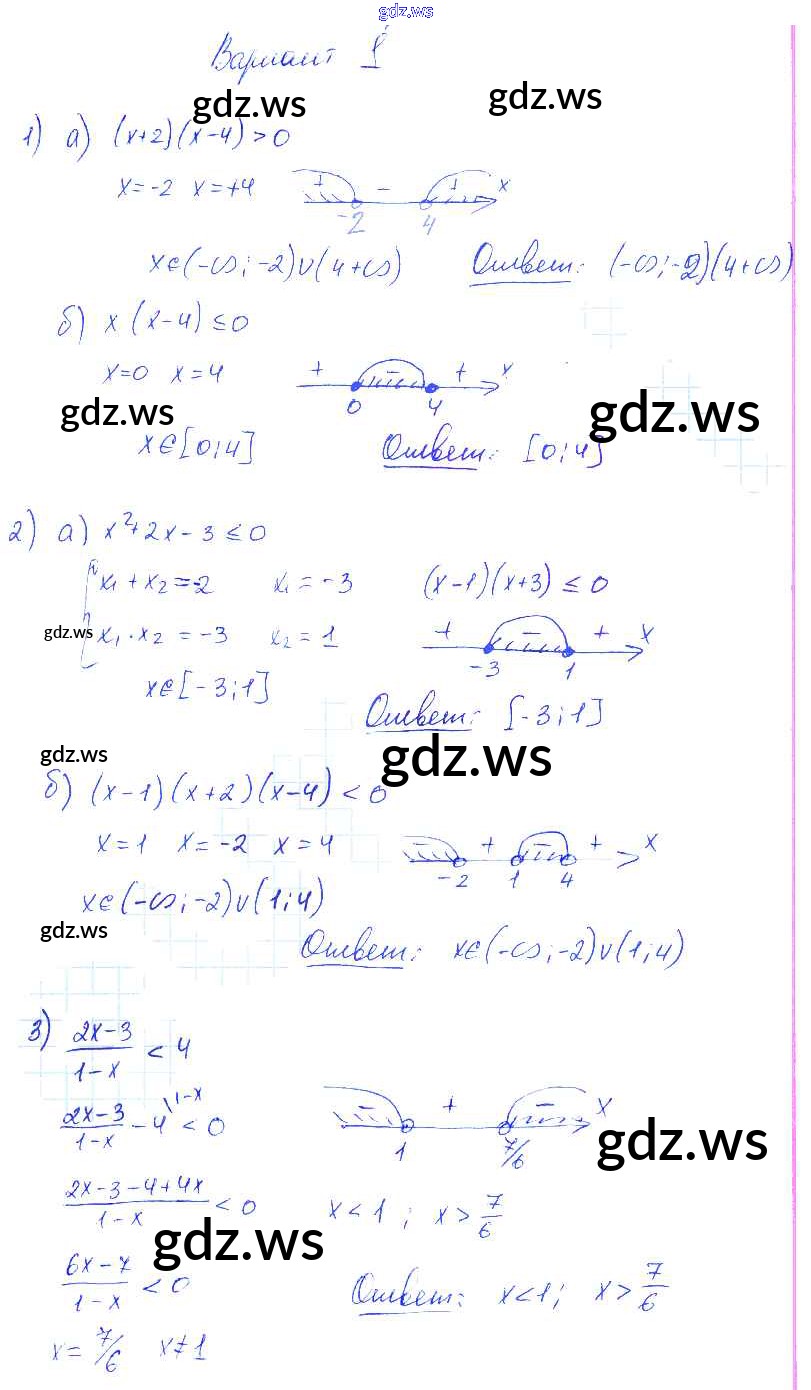 gdz.ws
Вариант 1
gdz.ws gdz.ws
1) а) (x+2)(x-4)>0
x=-2 x=+4 + - + x
-2 4
x∈(-∞;-2)∪(4+∞) Ответ: (-∞;-2)(4+∞)
б) x(x-4)≤0
x=0 x=4 + - + x
0 4
gdz.ws gdz.ws
x∈[0;4] Ответ: [0;4]
2) а) x²+2x-3≤0
x₁+x₂=-2 x₁=-3 (x-1)(x+3)≤0
gdz.ws x₁·x₂=-3 x₂=1 + - + x
-3 1
x∈[-3;1]
Ответ: [-3;1]
gdz.ws gdz.ws
б) (x-1)(x+2)(x-4)<0
x=1 x=-2 x=4 - + - + x
-2 1 4
x∈(-∞;-2)∪(1;4)
gdz.ws
Ответ: x∈(-∞;-2)∪(1;4)
3) (2x-3)/(1-x) < 4
(2x-3)/(1-x) - 4\1-x < 0 - + - x
1 7/6
gdz.ws
(2x-3-4+4x)/(1-x) < 0 x<1; x>7/6
gdz.ws
(6x-7)/(1-x) < 0 Ответ: x<1; x>7/6
x=7/6 x≠1